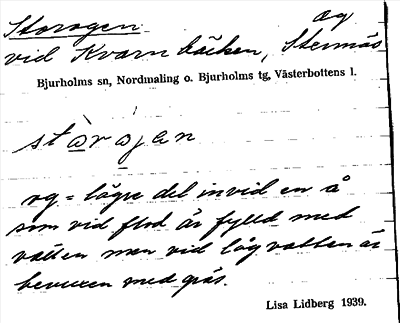 Storogen äg
vid Kvarnbäcken, Stennäs
Bjurholms sn, Nordmaling o. Bjurholms tg, Västerbottens l.
storogen
rog = lägre del invid en å
som vid flod är fylld med
vatten men vid lågvatten är
bevuxen med gräs.
Lisa Lidberg 1939.